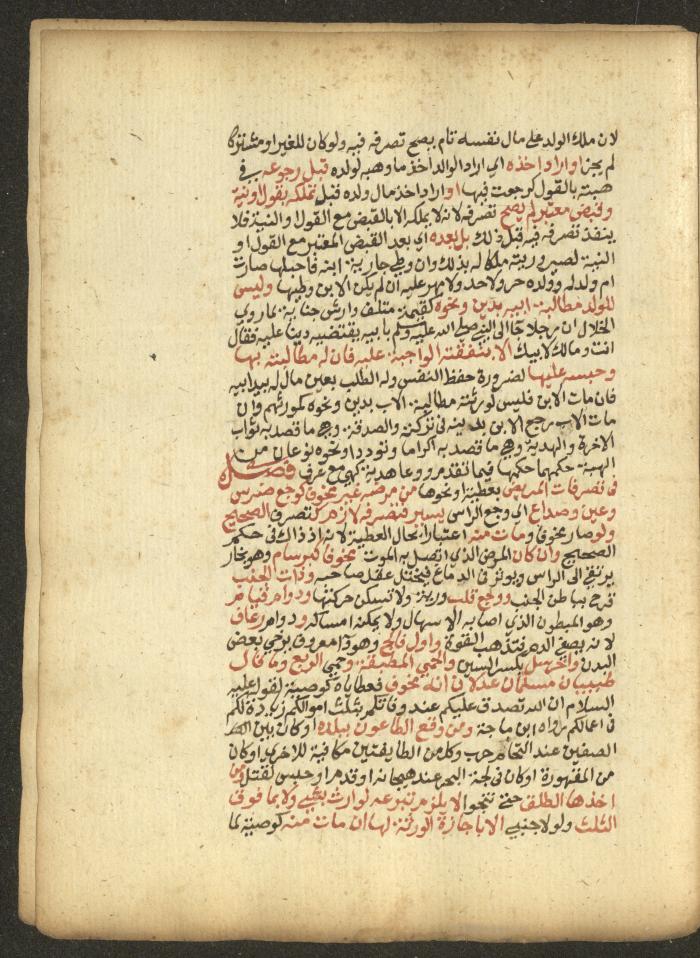 لان ملك الولد على مال نفسه تام يصح تصرفه فيه ولو كان للغير او مشتركا
لم يجز او اراد اخذه اي اراد الوالد اخذ ما وهبه لولده قبل رجوعه في
هبته بالقول كرجعت فيها او اراد اخذ مال ولده قبل تملكه بقول او نية
وقبض معتبر لم يصح تصرفه لانه لا يملكه الا بالقبض مع القول او النية فلا
ينفذ تصرفه فيه قبل ذلك بل بعده اي بعد القبض المعتبر مع القول او
النية لصيرورته ملكا له بذلك وان وطي جارية ابنه فاحبلها صارت
ام ولد له وولده حر ولا حد ولا مهر عليه ان لم يكن الابن وطئها وليس
للولد مطالبة ابيه بدين ونحوه كقيمة متلف وارش جناية لما روي
الخلال ان رجلا جا الى النبي صلى الله عليه وسلم بابيه يقتضيه دينا عليه فقال
انت ومالك لابيك الا بنفقته الواجبة عليه فان له مطالبته بها
وحبسه عليها لضرورة حفظ النفس وله الطلب بعين مال له بيد ابيه
فان مات الابن فليس لورثته مطالبة الاب بدين ونحوه كمورثهم وان
مات الاب رجع الابن بدينه في تركته والصدقة وهي ما قصد به ثواب
الاخرة والهدية وهي ما قصد به اكراما وتوددا ونحوه نوعان من
الهبة حكمهما حكمها فيما تقدم ووعا هدية كهي مع عرف فصل
في تصرفات المريض بعطية او نحوها من مرضه غير مخوف كوجع ضرس
وعين وصداع اي وجع الراس يسير فتصرفه لازم كتصرف الصحيح
ولو صار مخوفا ومات منه اعتبارا بحال العطية لانه اذ ذاك في حكم
الصحيح وان كان المرض الذي اتصل به الموت مخوفا كبرسام وهو بخار
يرتقي الى الراس ويوثر في الدماغ فيختل عقل صاحبه وذات الجنب
قرح بباطن الجنب ووجع قلب ورية ولا تسكن حركتها ودوام قيام
وهو المبطون الذي اصابه الاسهال ولا يمكنه امساكه ودوام رعاف
لانه يصفي الدم فتذهب القوة واول فالج وهو دا معروف يرخي بعض
البدن واخر سل بكسر السين والحمى المطبقة وحمى الربع وما قال
طبيبان مسلمان عدلان انه مخوف فعطاياه كوصية لقوله عليه
السلام ان الله تصدق عليكم عند وفاتكم بثلث اموالكم زيادة لكم
في اعمالكم رواه ابن ماجة ومن وقع الطاعون ببلده او كان بين
الصفين عند التحام حرب وكل من الطايفتين مكافية للاخرى او كان
من المقهورة او كان في لجة البحر عند هيجانه او قدم او حبس لقتل ومن
اخذها الطلق حتى تنجو لا يلزم تبرعه لوارث بشي ولا بما فوق
الثلث ولو لاجنبي الا باجازة الورثة لها ان مات منه كوصية لما